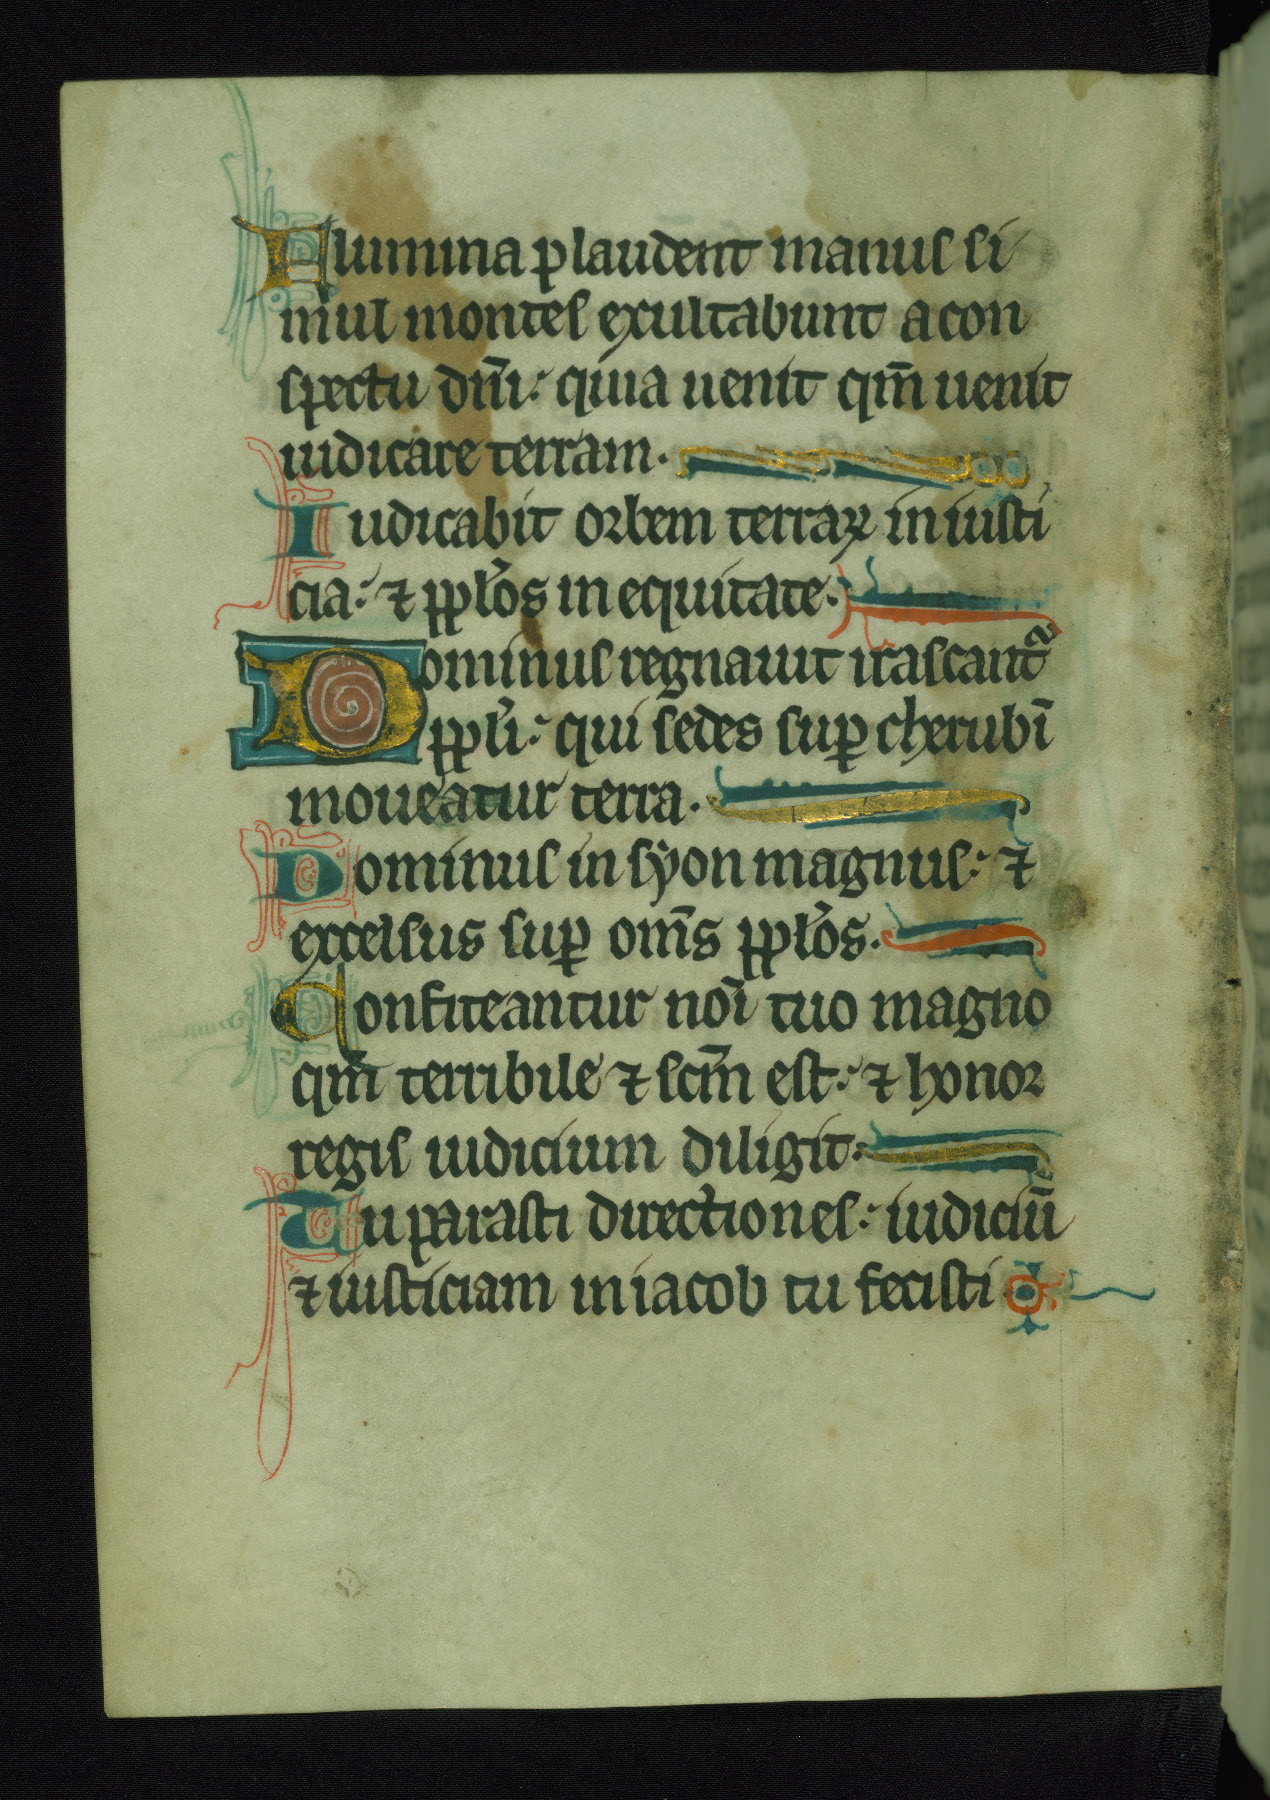 Flumina plaudent manus si
mul montes exultabunt a con
spectu dñi: quia uenit qm̄ uenit
iudicare terram.
Iudicabit orbem terraꝝ in iusti
cia: ⁊ pplos in equitate.
Dominus regnauit irascantᷓ
ppli: qui sedes suꝑ cherubī
moueatur terra.
Dominus in syon magnus: ⁊
excelsus suꝑ om̄s pplos.
Confiteantur noī tuo magno
qm̄ terribile ⁊ scm̄ est: ⁊ honor
regis iudicium diligit.
Tu parasti directiones: iudiciū
⁊ iusticiam in iacob tu fecisti